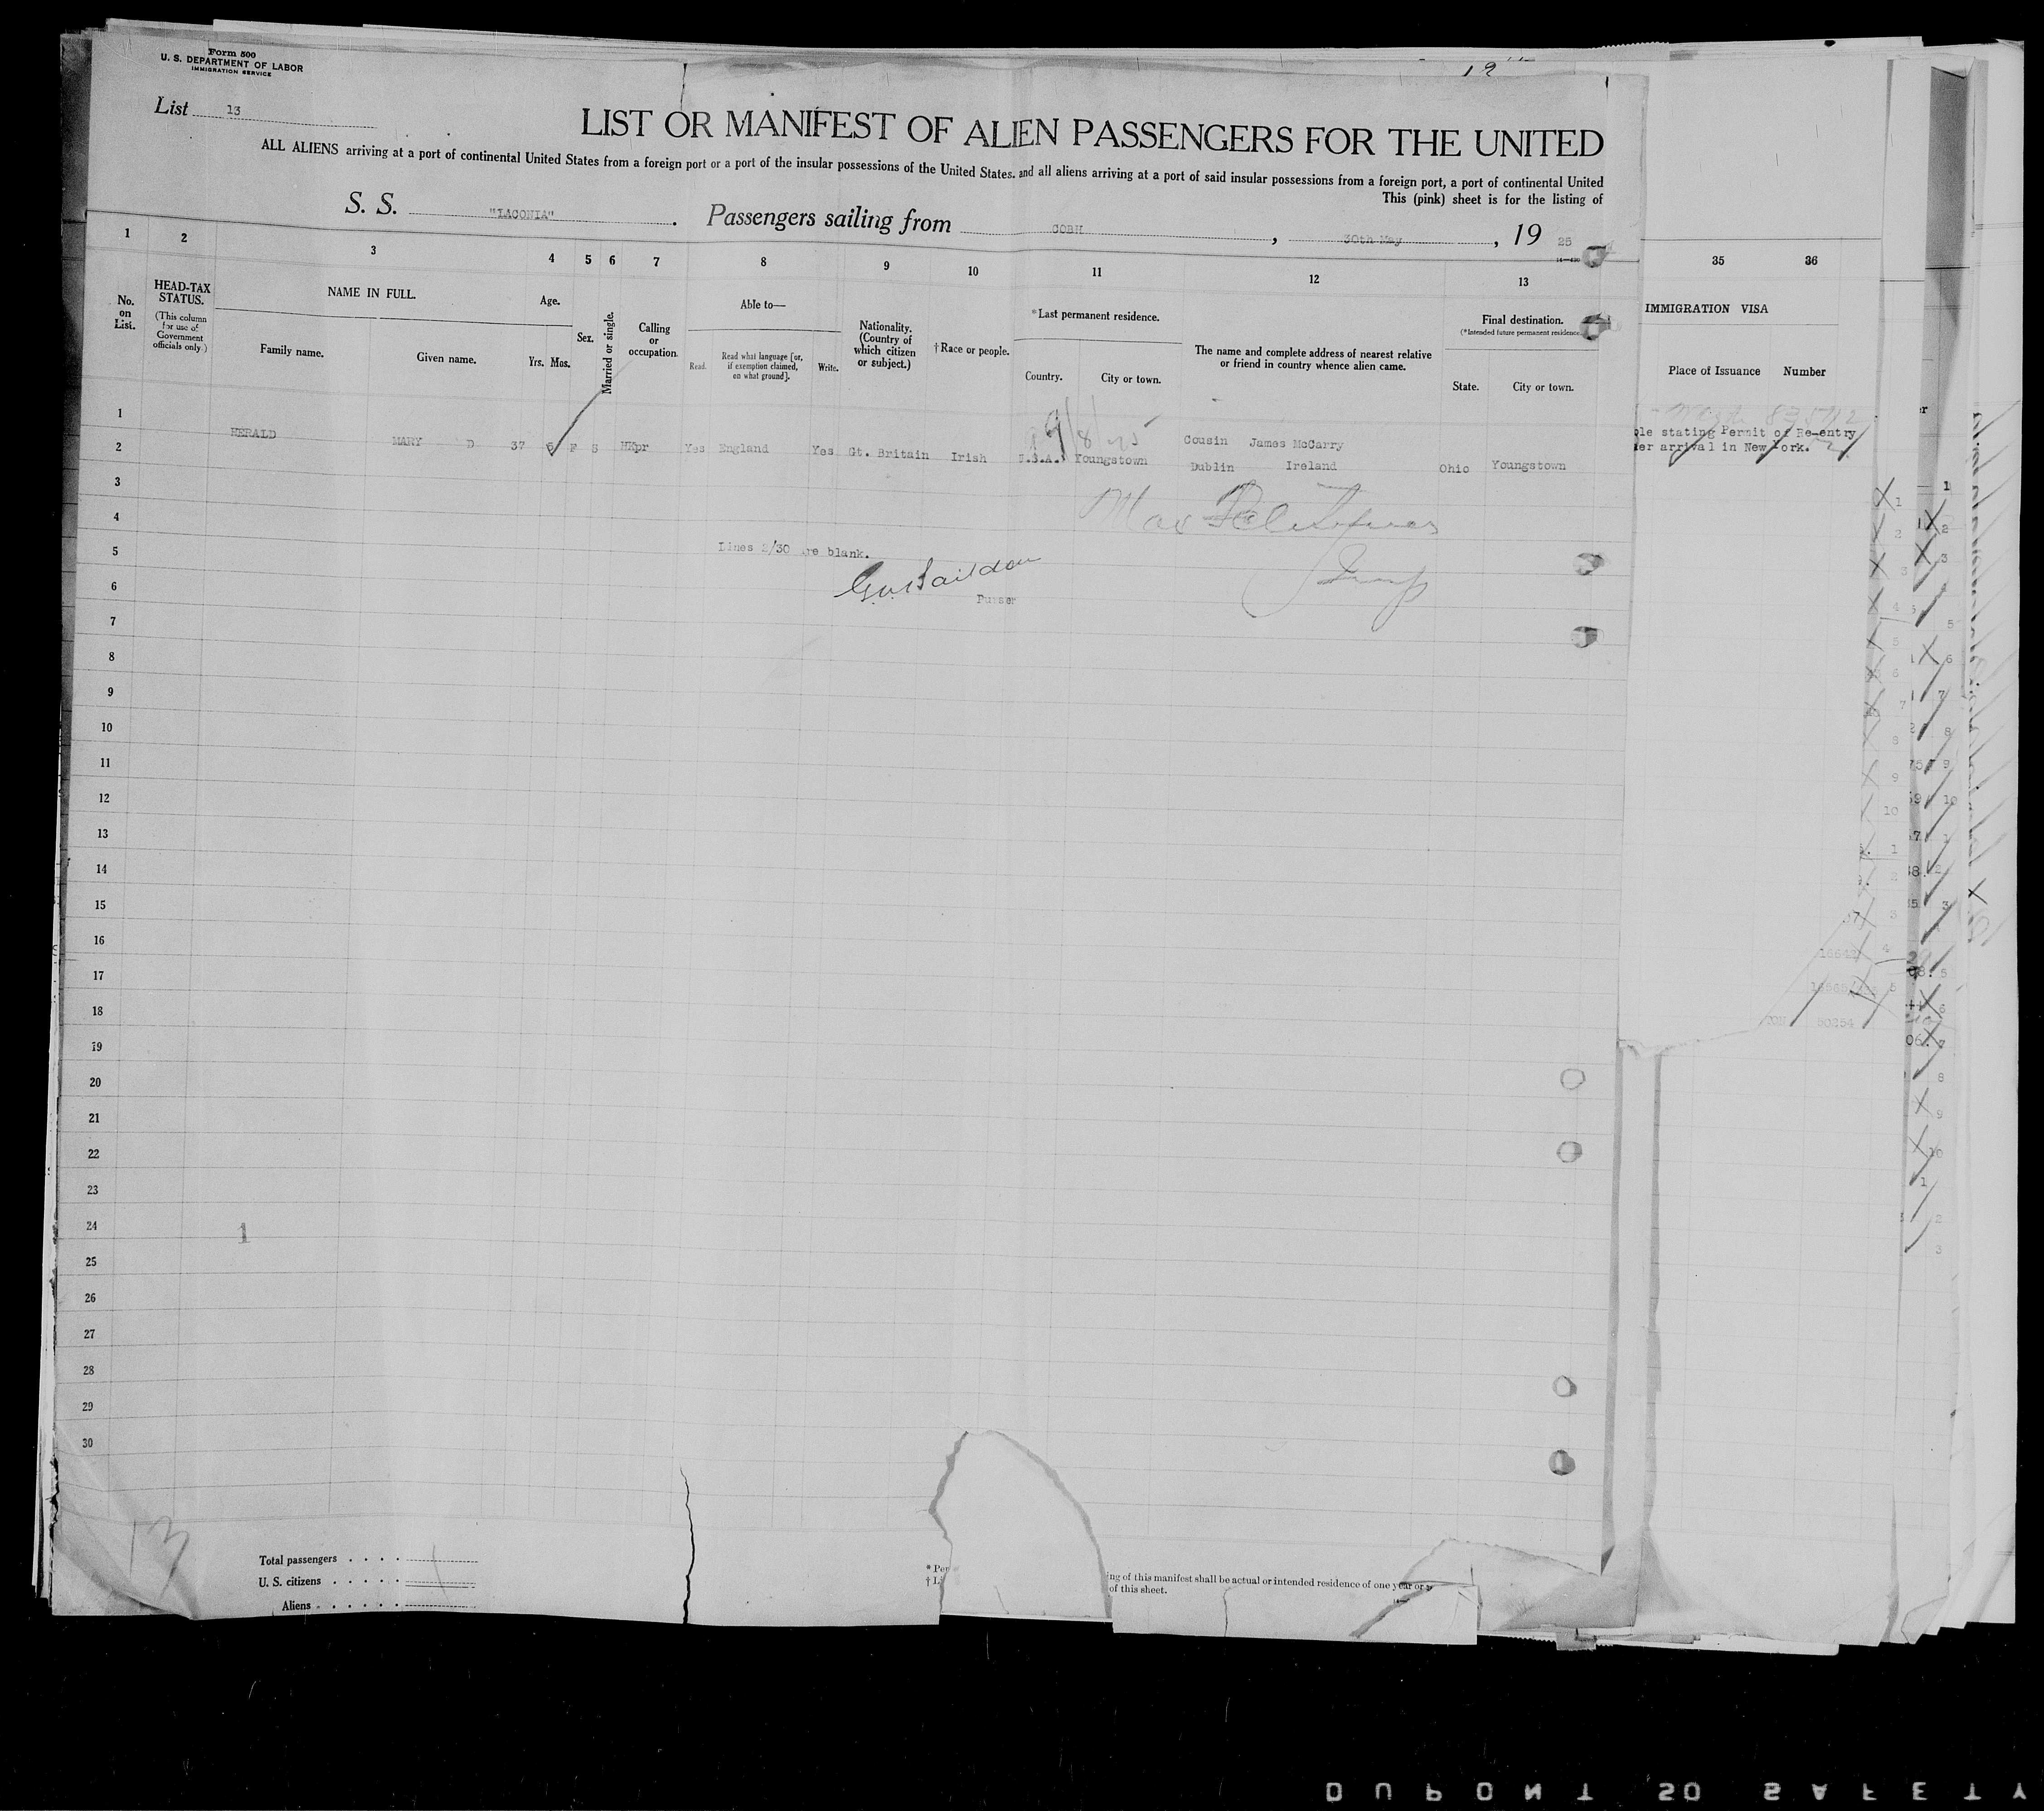 Form 500
U. S. DEPARTMENT OF LABOR
IMMIGRATION SERVICE
List 13
LIST OR MANIFEST OF ALIEN PASSENGERS FOR THE UNITED
ALL ALIENS arriving at a port of continental United States from a foreign port or a port of the insular possessions of the United States, and all aliens arriving at a port of said insular possessions from a foreign port, a port of continental United
This (pink) sheet is for the listing of
S. S. "LACONIA". Passengers sailing from COBH, 30th May, 19 25
1 2 3 4 5 6 7 8 9 10 11 12 13 35 36
No. on List.
HEAD-TAX STATUS.
(This column for use of Government officials only.)
NAME IN FULL.
Family name. Given name.
Age.
Yrs. Mos.
Sex.
Married or single.
Calling or occupation.
Able to—
Read. Read what language [or, if exemption claimed, on what ground]. Write.
Nationality. (Country of which citizen or subject.)
†Race or people.
*Last permanent residence.
Country. City or town.
The name and complete address of nearest relative or friend in country whence alien came.
Final destination.
(*Intended future permanent residence.)
State. City or town.
IMMIGRATION VISA
Place of Issuance Number
1
HERALD MARY D 37 5 F S HKpr Yes England Yes Gt. Britain Irish U.S.A. Youngstown Cousin James McCarry
Dublin Ireland Ohio Youngstown
stating Permit of Re-entry
arrival in New York.
2
3
4
5
Lines 2/30 are blank.
6
Purser
7
8
9
10
11
12
13
14
15
16
17
18
19
20
21
22
23
24
1
25
26
27
28
29
30
13
Total passengers 1
U. S. citizens
Aliens
ing of this manifest shall be actual or intended residence of one year or
of this sheet.
DUPONT SAFETY